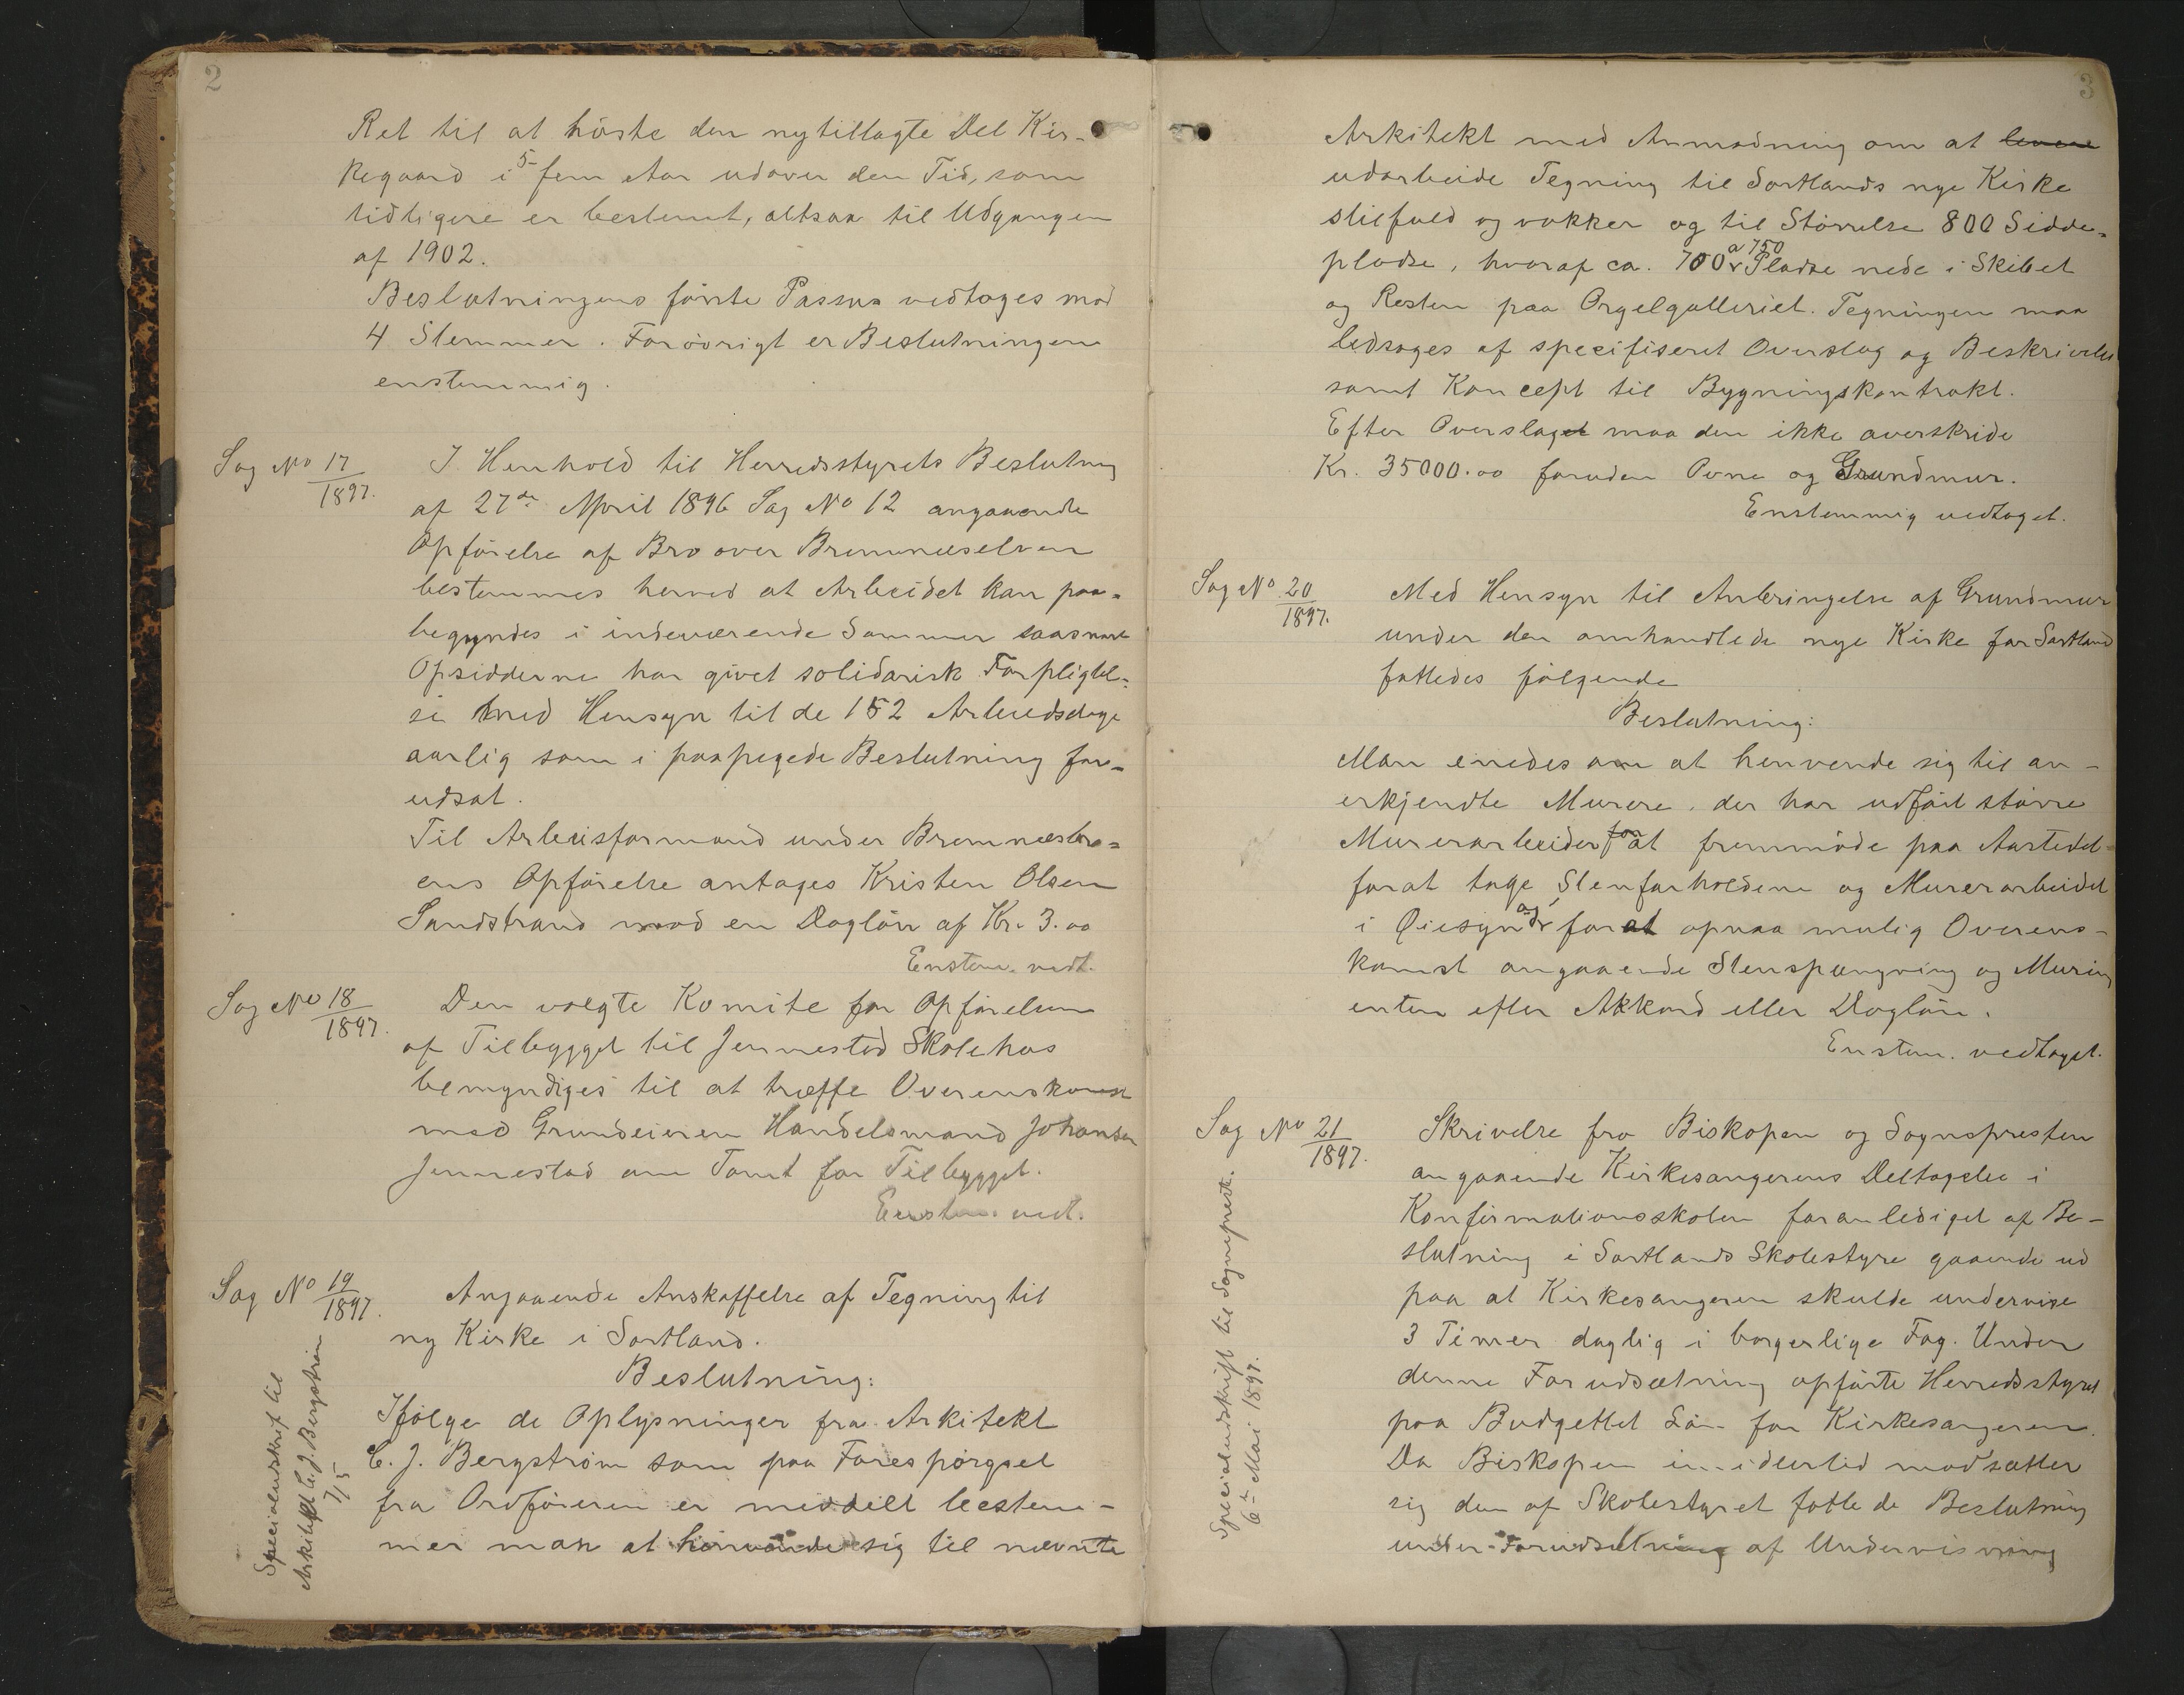 2
Ret til at höste den nytillagte Del Kir-
kegaard i 5 fem Aar udover den Tid, som
tidligere er bestemt, altsaa til Udgangen
af 1902.
Beslutningens förste Passus vedtoges mod
4 Stemmer. Forövrigt er Beslutningen
enstemmig.
Sag No 17/1897.
I Henhold til Herredsstyrets Beslutning
af 27de April 1896 Sag No 12 angaaende
Opförelse af Bro over Bremnæselven
bestemmes herved at Arbeidet kan paa-
begyndes i indeværende Sommer saasnart
Opsidderne har givet solidarisk Forpligtel-
se med Hensyn til de 152 Arbeidsdage
aarlig som i paapegede Beslutning for-
udsat.
Til Arbeisformand under Bremnæsbro-
ens Opförelse antages Kristen Olsen
Sandstrand mod en Daglön af Kr. 3.00
Enstem. vedt.
Sag No 18/1897.
Den valgte Komite for Opförelsen
af Tilbygget til Jennestad Skolehus
bemyndiges til at træffe Overenskomst
med Grundeieren Handelsmand Johansen
Jennestad om Tomt for Tilbygget.
Enstem. vedt.
Sag No 19/1897.
Angaaende Anskaffelse af Tegning til
ny Kirke i Sortland.
Beslutning:
Ifölge de Oplysninger fra Arkitekt
C. J. Bergström som paa Forespörgsel
fra Ordföreren er meddelt bestem-
mer man at henvende sig til nævnte
Specialudskrift til
Arkitekt C. J. Bergström
7/5
3
Arkitekt med Anmodning om at levere
udarbeide Tegning til Sortlands nye Kirke
stilfuld og vakker og til Störrelse 800 Sidde-
pladse, hvoraf ca. 700 a 750 Pladse nede i Skibet
og Resten paa Orgelgalleriet. Tegningen maa
ledsages af specifiseret Overslag og Beskrivelse
samt Koncept til Bygningskontrakt.
Efter Overslaget maa den ikke overskride
Kr. 35000.00 foruden Ovne og Grundmur.
Enstemmig vedtaget.
Sag No 20/1897.
Med Hensyn til Anbringelse af Grundmur
under den omhandlede nye Kirke for Sortland
fattedes fölgende
Beslutning:
Man enedes om at henvende sig til an-
erkjendte Murere, der har udfört större
Murerarbeider for at fremmöde paa Aastedet
forat tage Stenforholdene og Murerarbeidet
i Øiesyn og forat opnaa mulig Overens-
komst angaaende Stensprængning og Muring
enten efter Akkord eller Daglön.
Enstem. vedtaget.
Sag No 21/1897.
Skrivelse fra Biskopen og Sognepresten
angaaende Kirkesangerens Deltagelse i
Konfirmationsskolen foranlediget af Be-
slutning i Sortlands Skolestyre gaaende ud
paa at Kirkesangeren skulde undervise
3 Timer daglig i borgerlige Fag. Under
denne Forudsætning opförte Herredsstyret
paa Budgettet Lön for Kirkesangeren.
Da Biskopen imidlertid modsætter
sig den af Skolestyret fattede Beslutning
under Forudsætning af Undervisning
Specialudskrift til Sogneprest.
6te Mai 1897.